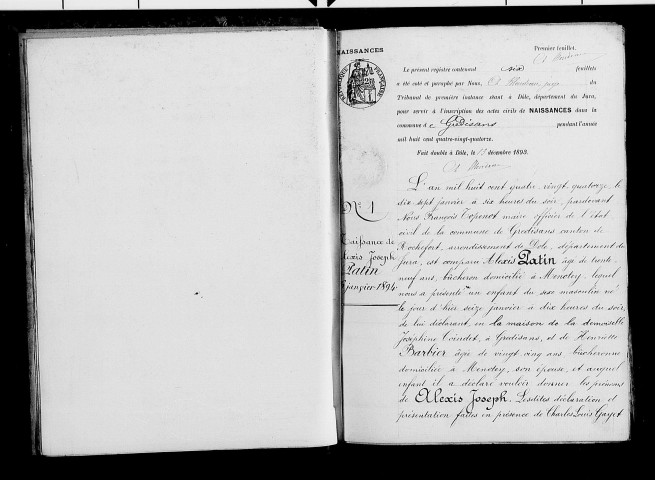 NAISSANCES
Premier feuillet.
RÉPUBLIQUE FRANÇAISE
Le présent registre contenant six feuillets
a été coté et paraphé par Nous, juge du
Tribunal de première instance séant à Dôle, département du Jura,
pour servir à l'inscription des actes civils de NAISSANCES dans la
commune de Gredisans pendant l'année
mil huit cent quatre-vingt-quatorze.
Fait double à Dôle, le décembre 1893.
N° 1
Naissance de
Alexis Joseph
Patin
janvier 1894
L'an mil huit cent quatre-vingt-quatorze, le
dix-sept janvier à six heures du soir, pardevant
Nous François Topenot maire officier de l'état
civil de la commune de Gredisans canton de
Rochefort, arrondissement de Dole, département du
Jura, est comparu Alexis Patin âgé de trente-
neuf ans, bûcheron domicilié à Menotey, lequel
nous a présenté un enfant du sexe masculin né
le jour d'hier seize janvier à dix heures du soir,
de lui déclarant, en la maison de la demoiselle
Joséphine Coindet, à Gredisans, et de Henriette
Barbier âgée de vingt-cinq ans bûcheronne
domiciliée à Menotey, son épouse, et auquel
enfant il a déclaré vouloir donner les prénoms
de Alexis Joseph. Lesdites déclaration et
présentation faites en présence de Charles Louis Gayet